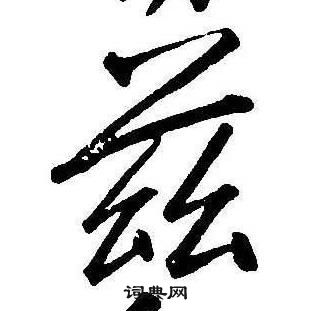 兹
词典网